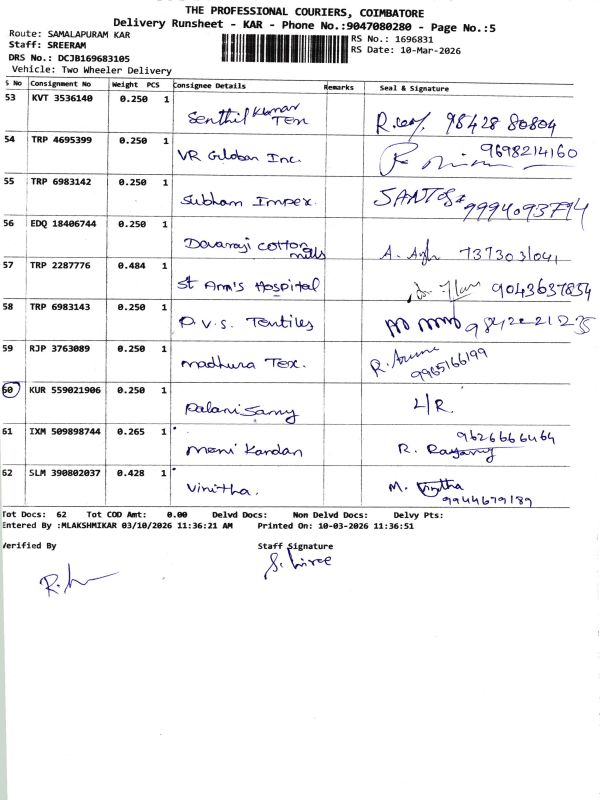 THE PROFESSIONAL COURIERS, COIMBATORE
Delivery Runsheet - KAR - Phone No.:9047080280 - Page No.:5
Route: SAMALAPURAM KAR
RS No.: 1696831
Staff: SREERAM
RS Date: 10-Mar-2026
DRS No.: DCJB169683105
Vehicle: Two Wheeler Delivery
S No Consignment No Weight PCS Consignee Details Remarks Seal & Signature
53 KVT 3536140 0.250 1 Senthil Kumar Tex 98428 80804
54 TRP 4695399 0.250 1 VR Global Inc. 9698214160
55 TRP 6983142 0.250 1 Subham Impex. SANTOSH
56 EDQ 18406744 0.250 1 Devaraji cotton mills A. 7373031041
57 TRP 2287776 0.484 1 St Ann's Hospital 9043637854
58 TRP 6983143 0.250 1 P.V.S. Textiles
59 RJP 3763089 0.250 1 Madhura Tex. R. 9965166199
60 KUR 559021906 0.250 1 Palani Samy L/R.
61 IXM 509898744 0.265 1 Mani Kandan R. 9626666464
62 SLM 390802037 0.428 1 Vinitha. M. Vinitha 9944679189
Tot Docs: 62 Tot COD Amt: 0.00 Delvd Docs: Non Delvd Docs: Delvy Pts:
Entered By :MLAKSHMIKAR 03/10/2026 11:36:21 AM Printed On: 10-03-2026 11:36:51
Verified By Staff Signature